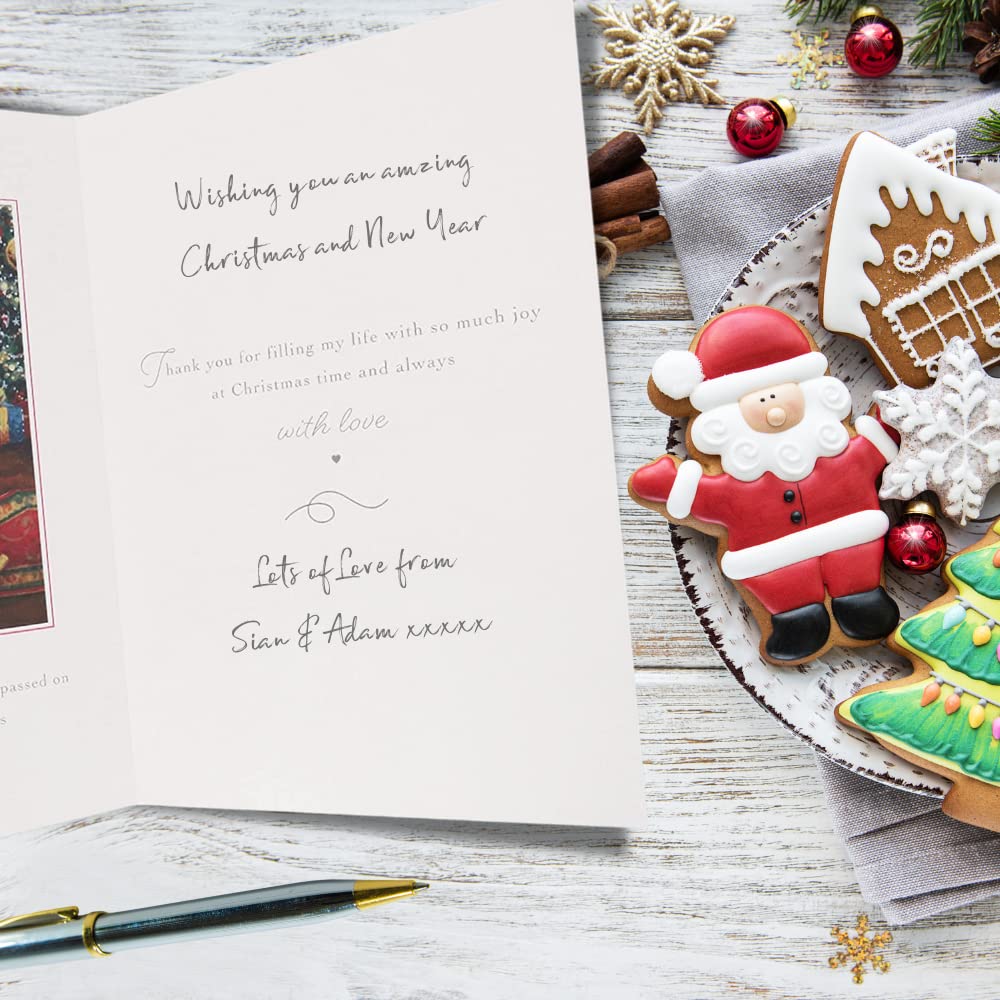 passed on
s
Wishing you an amzing
Christmas and New Year
Thank you for filling my life with so much joy
at Christmas time and always
with love
Lots of Love from
Sian & Adam xxxxx